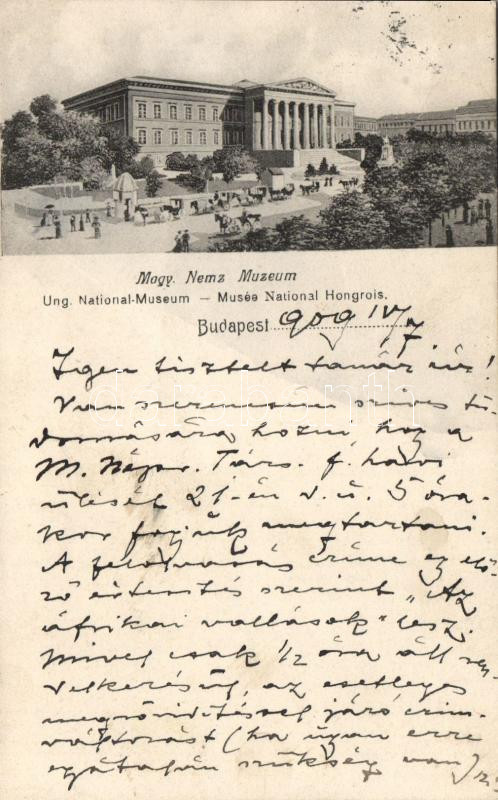 Magy. Nemz Muzeum
Ung. National-Museum — Musée National Hongrois.
Budapest 909 IV/7
Igen tisztelt tanár úr!
Van szerencsém szives tu-
domására hozni, hogy a
M. Népr. Társ. f. havi
ülését 21-én d. u. 5 óra-
kor fogjuk megtartani.
A felolvasás címe az elő-
ző értesítés szerint "Az
áfrikai vallások" lesz.
Mivel csak 1/2 óra áll ren-
delkezésre, az esetleges
megröviditéssel járó cím-
változást (ha ugyan erre
egyáltalán szükség van)
darabanth.com